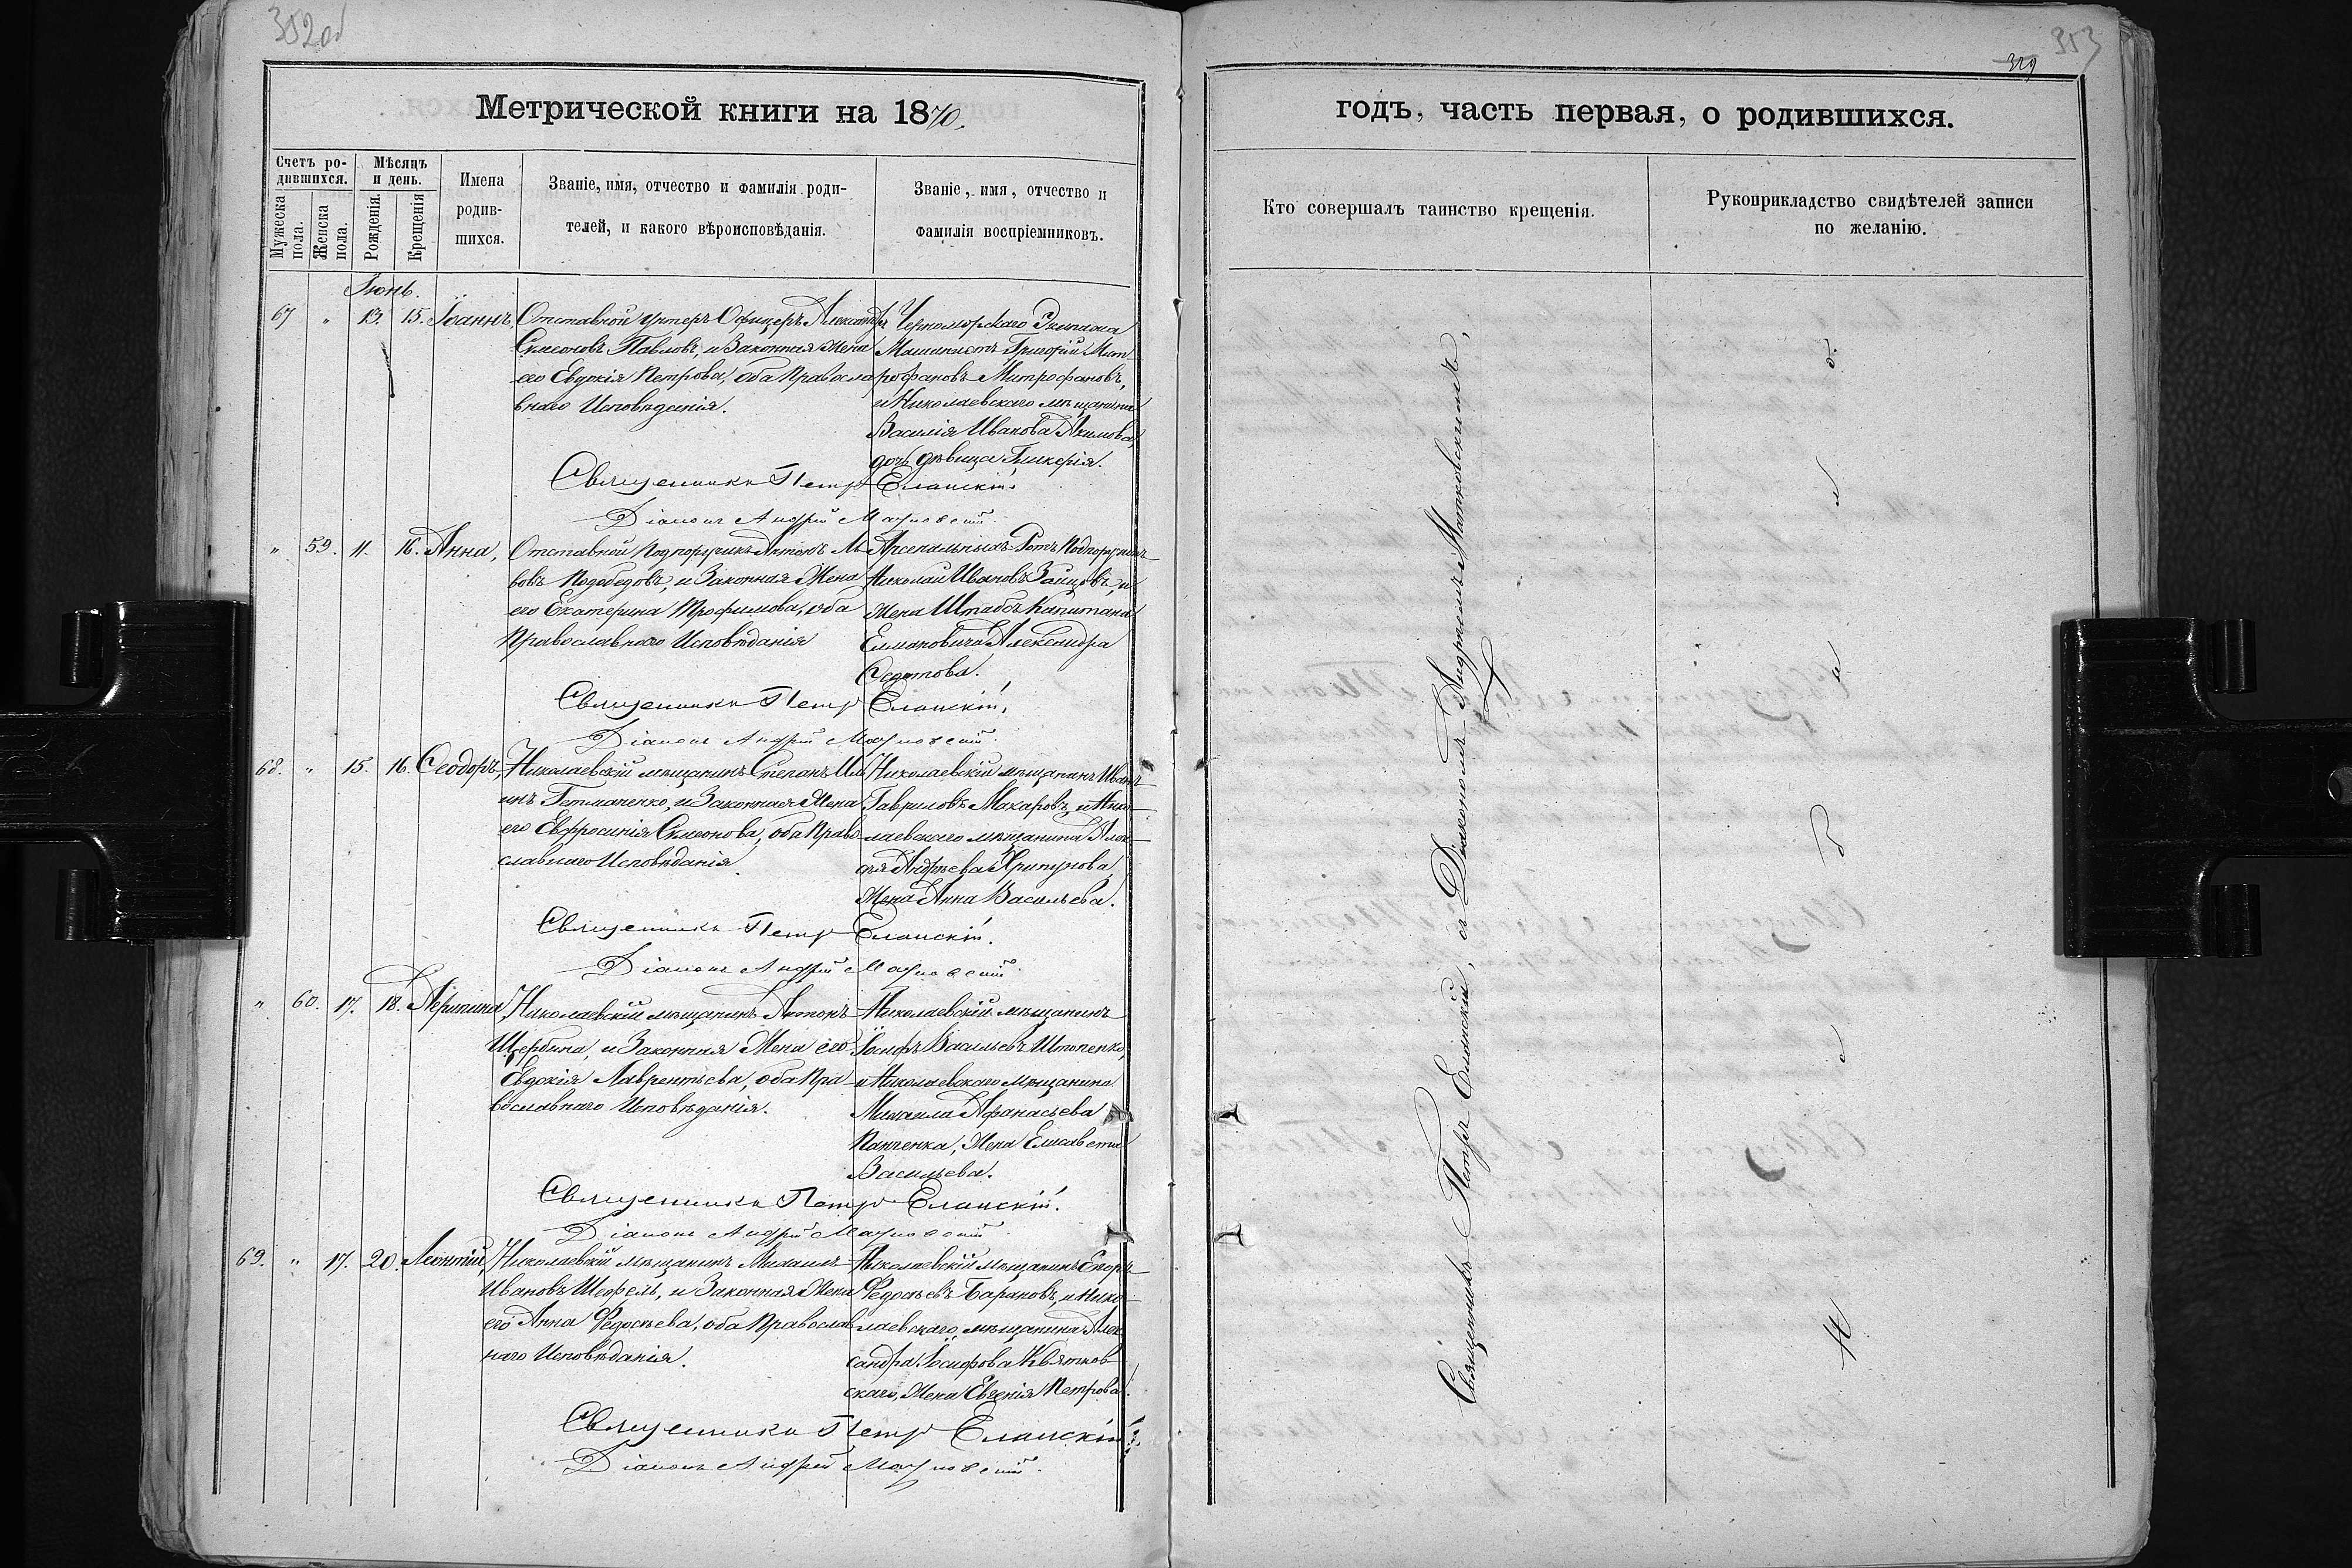 352об
Метрической книги на 1870.
Счетъ ро-
дившихся.
Мѣсяцъ
и день.
Мужеска
пола.
Женска
пола.
Рожденія.
Крещенія
Имена
родив-
шихся.
Званіе, имя, отчество и фамилія роди-
телей, и какого вѣроисповѣданія.
Званіе, имя, отчество и
фамилія воспріемниковъ.
Іюнь.
67 " 13. 15. Іоаннъ,
Отставной Унтеръ Офицеръ Александръ
Симеоновъ Павловъ, и Законная Жена
его Евдокія Петрова, оба Правосла
внаго Исповѣданія.
Черноморскаго Экипажа
Машинистъ Григорій Мит-
рофановъ Митрофановъ,
и Николаевскаго мѣщанина
Василія Иванова Акимова,
дочь дѣвица Гликерія.
Священникъ Петръ Еланскій.
Діаконъ Андрей
" 59. 11. 16. Анна,
Отставной Подпоручикъ Антонъ Ль
вовъ Подобедовъ, и Законная Жена
его Екатерина Трофимова, оба
Православнаго Исповѣданія
Арсенальныхъ Ротъ Подпоручикъ
Николай Ивановъ Зайцовъ, и
Жена Штабсъ Капитана
Александра
Священникъ Петръ Еланскій,
Діаконъ Андрей
68. " 15. 16. Ѳеодоръ,
Николаевскій мѣщанинъ Степанъ Иль
инъ Гетманенко, и Законная Жена
его Евфросинія Симеонова, оба Право
славнаго Исповѣданія.
Николаевскій мѣщанинъ Иванъ
Гавриловъ Макаровъ, и Нико
лаевскаго мѣщанина Алек
сѣя Андреева Хрипунова,
Жена Анна Васильева.
Священникъ Петръ Еланскій.
Діаконъ Андрей
" 60. 17. 18. Агрипина,
Николаевскій мѣщанинъ Антонъ
Щербина, и Законная Жена его
Евдокія Лаврентьева, оба Пра
вославнаго Исповѣданія.
Николаевскій мѣщанинъ
Іосифъ Васильевъ
и Николаевскаго Мѣщанина
Михаила Афанасьева
Панченка, Жена Елисавета
Васильева.
Священникъ Петръ Еланскій.
Діаконъ Андрей
69. " 17. 20. Леонтій,
Николаевскій мѣщанинъ Михаилъ
Ивановъ и Законная Жена
его Анна Федосѣева, оба Православ
наго Исповѣданія.
Николаевскій мѣщанинъ Егоръ
Федосѣевъ Барановъ, и Нико
лаевскаго мѣщанина Алек
сандра Іосифова Квятков
скаго, Жена Евгенія Петрова.
Священникъ Петръ Еланскій.
Діаконъ Андрей
353
годъ, часть первая, о родившихся.
Кто совершалъ таинство крещенія.
Рукоприкладство свидѣтелей записи
по желанію.
Священникъ Петръ Еланскій, съ Діакономъ Андреемъ